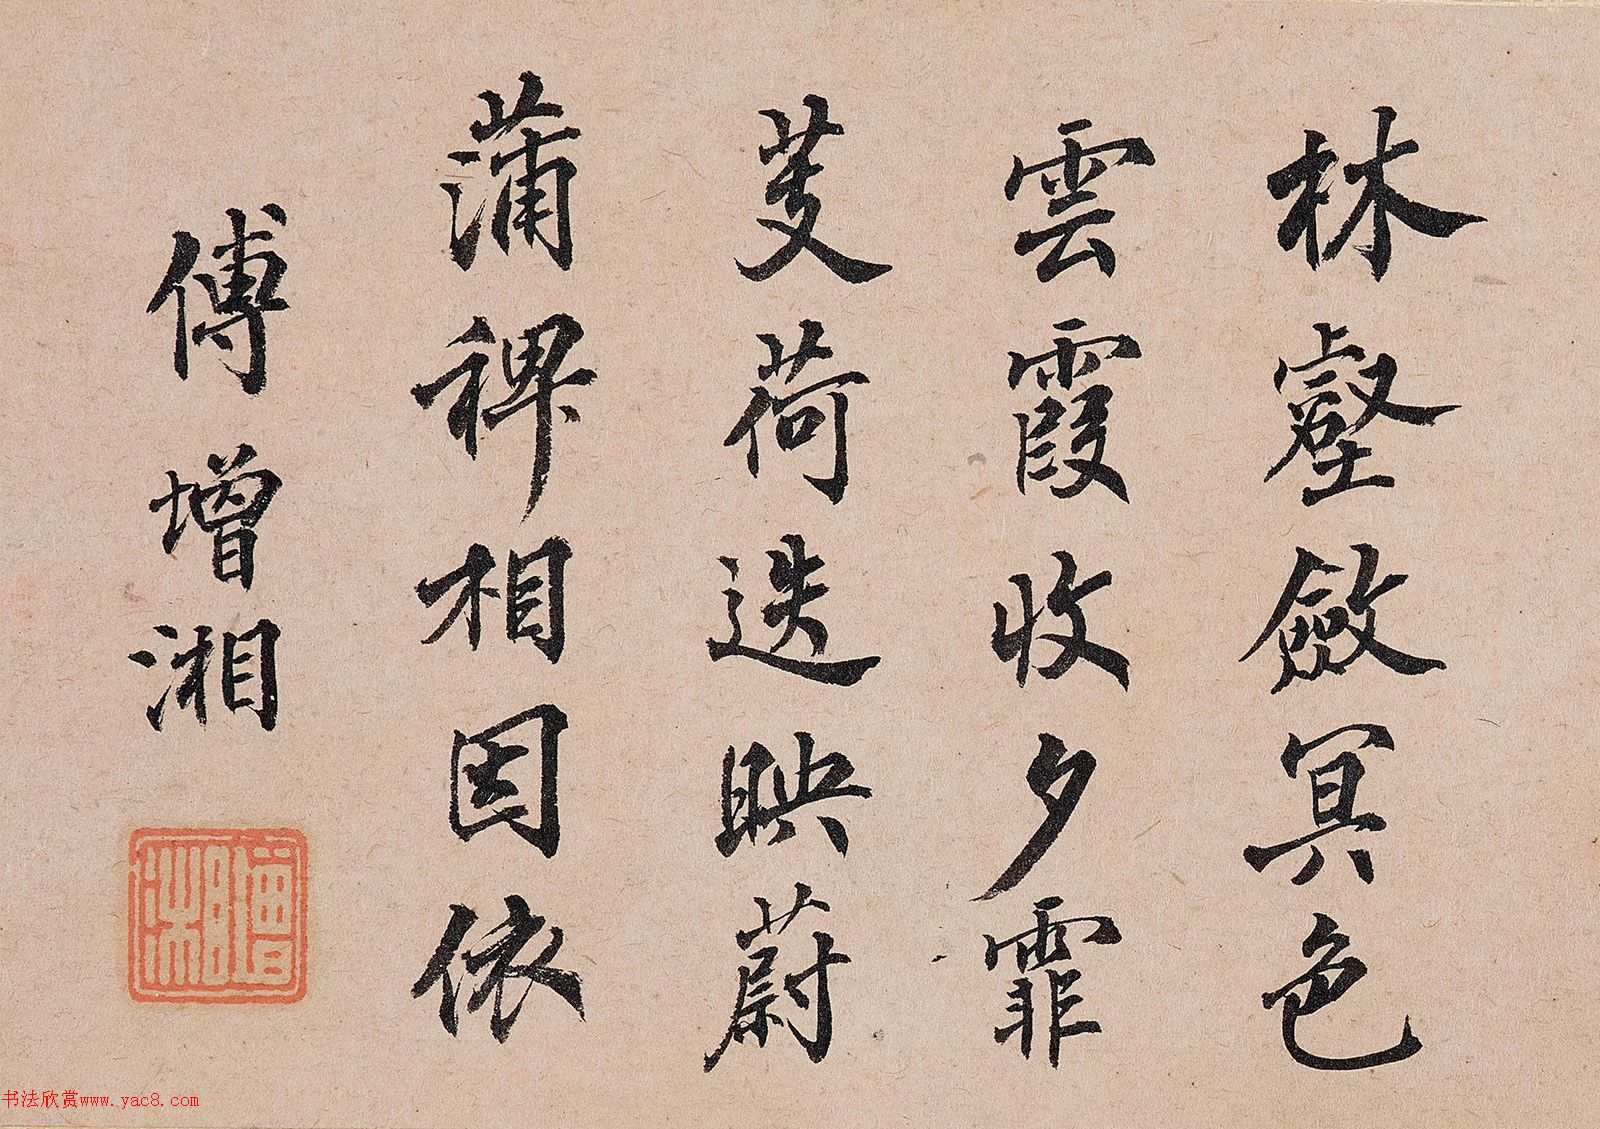 林壑斂冥色
雲霞收夕霏
芰荷迭映蔚
蒲稗相因依
傅增湘
书法欣赏www.yac8.com